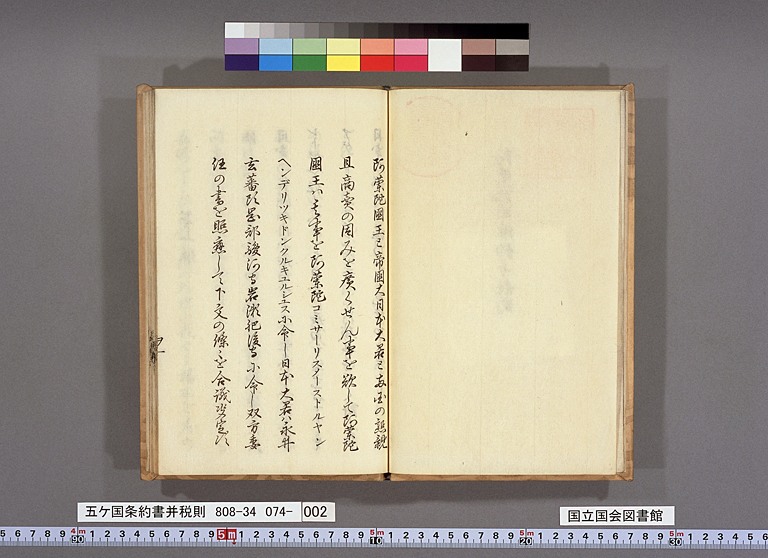 阿蘭陀國王と帝國大日本大君と両国の懇親
且商賣の因みを廣くせん事を欲して阿蘭陀
國王ハ其事を阿蘭陀コミサーリスダーストルヤン
ヘンデリッキドンクルキユルシュスに命し日本大君ハ永井
玄蕃頭岡部駿河守岩瀬肥後守に命し双方委
任の書を照應して下文の條々を合議決定す
五ケ国条約書并税則 808-34 074- 002
国立国会図書館